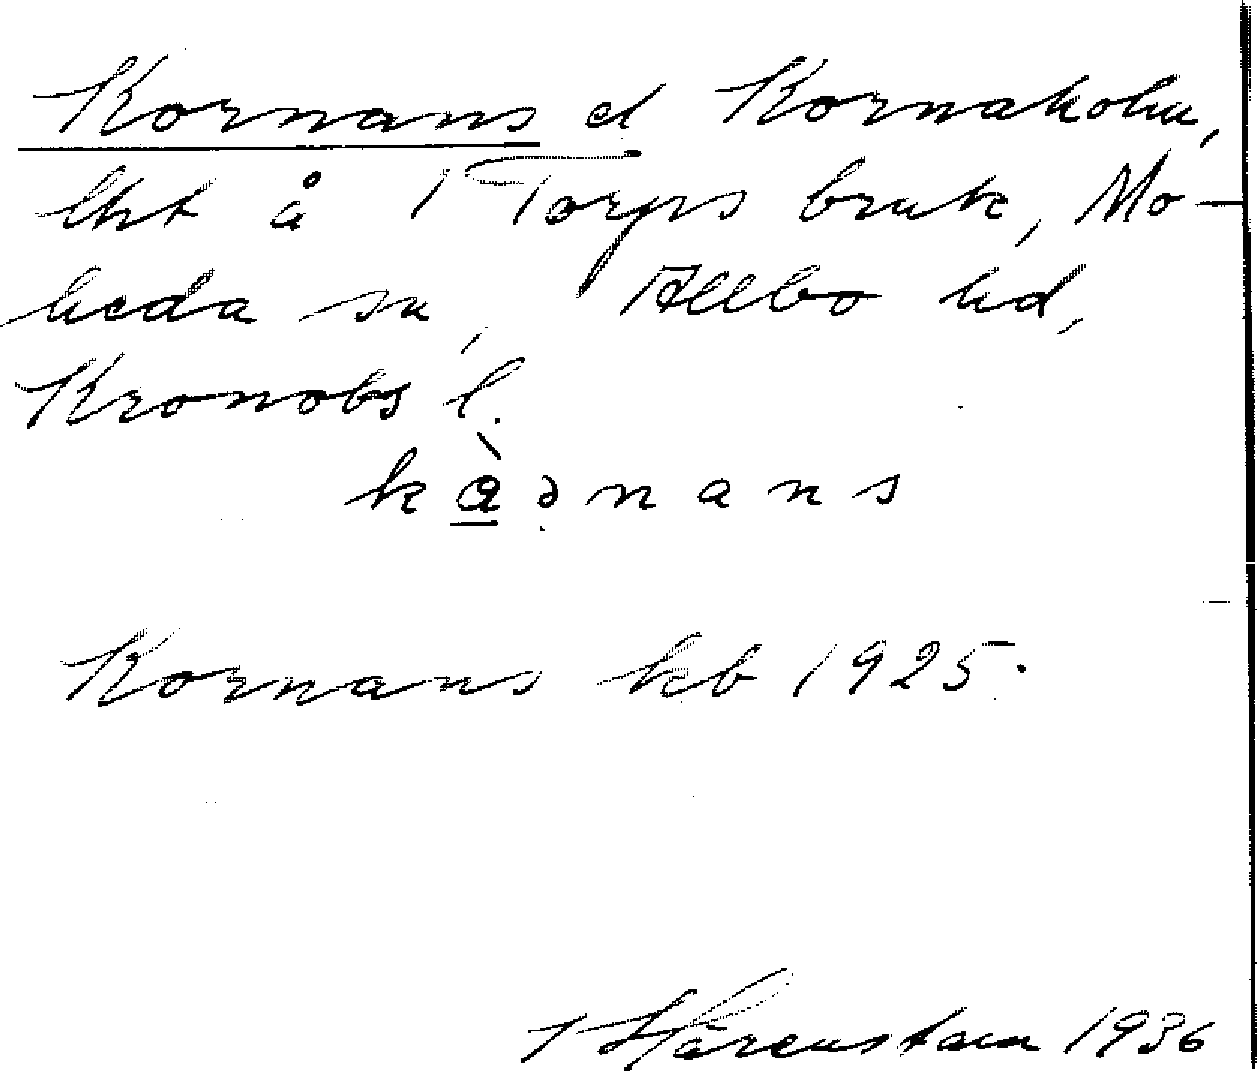 Kornans el Kornakolm,
lht å 1 Torps bruk, Mo-
heda sn, Allbo hd,
Kronobs l.
kàɔnans
Kornans kb 1925.
J Härenstam 1936